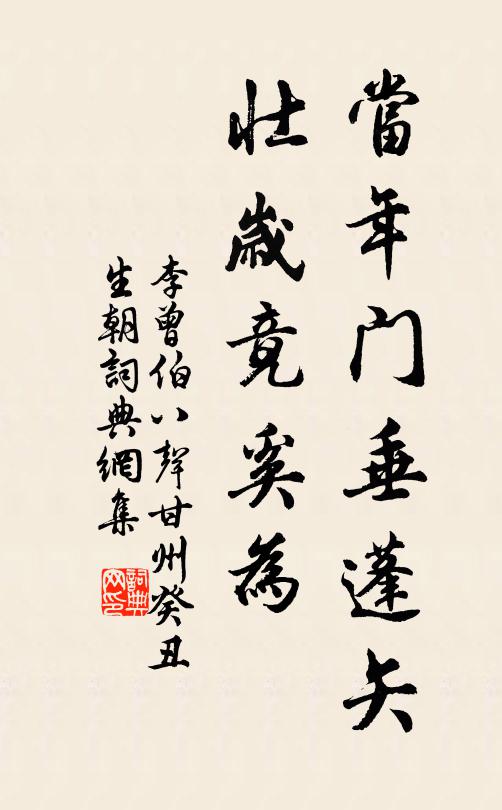 當年門垂蓬矢
壯歲竟奚為
李曾伯八聲甘州癸丑
生朝詞典網集
詞典网印